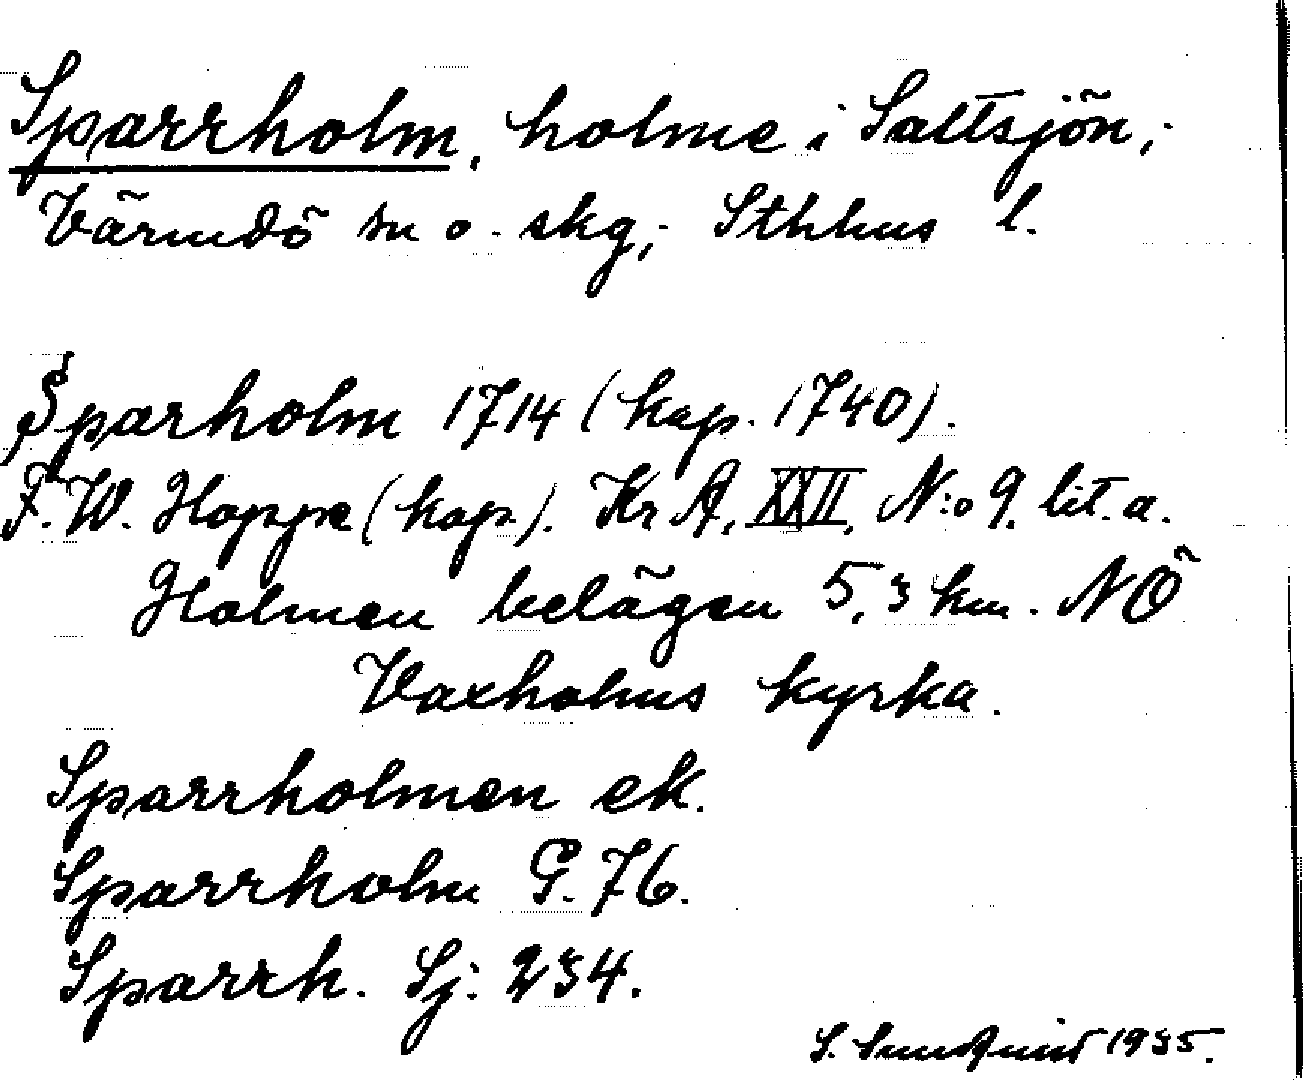 Sparrholm, holme i Saltsjön,
Värmdö sn o. skg, Sthlms l.
Sparholm 1714 (kop. 1740).
F. W. Hoppe (kop.). Kr A, XXII, N:o 9. lit. a.
Holmen belägen 5,3 km. NÖ
Vaxholms kyrka.
Sparrholmen ek.
Sparrholm G. 76.
Sparrh. Sj: 234.
S. Sundqvist 1935.